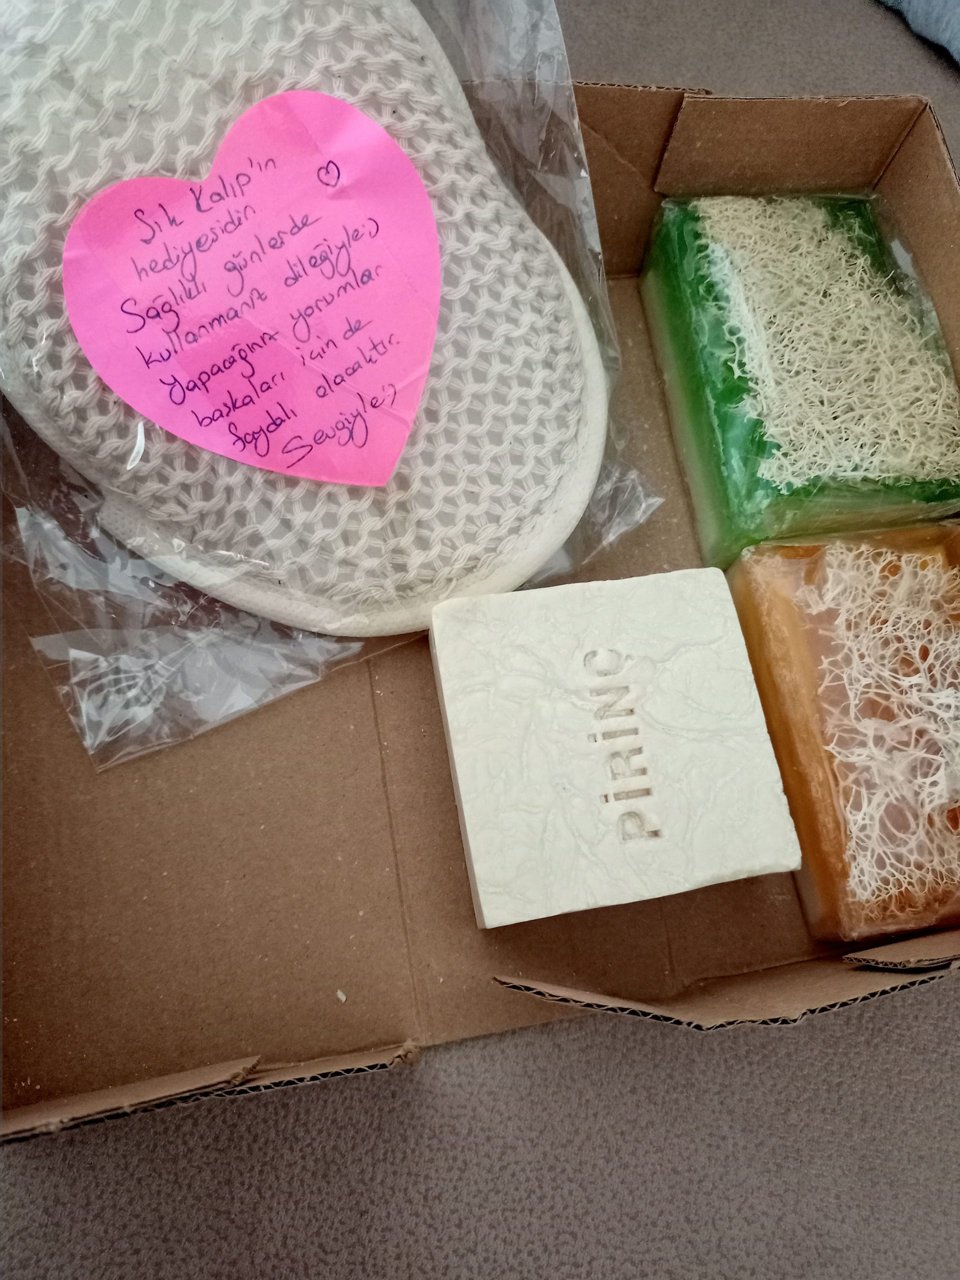 Şık Kalıp'ın
hediyesidir
Sağlıklı günlerde
kullanmanız dileğiyle:)
Yapacağınız yorumlar
başkaları için de
faydalı olacaktır.
Sevgiyle:)
PİRİNÇ